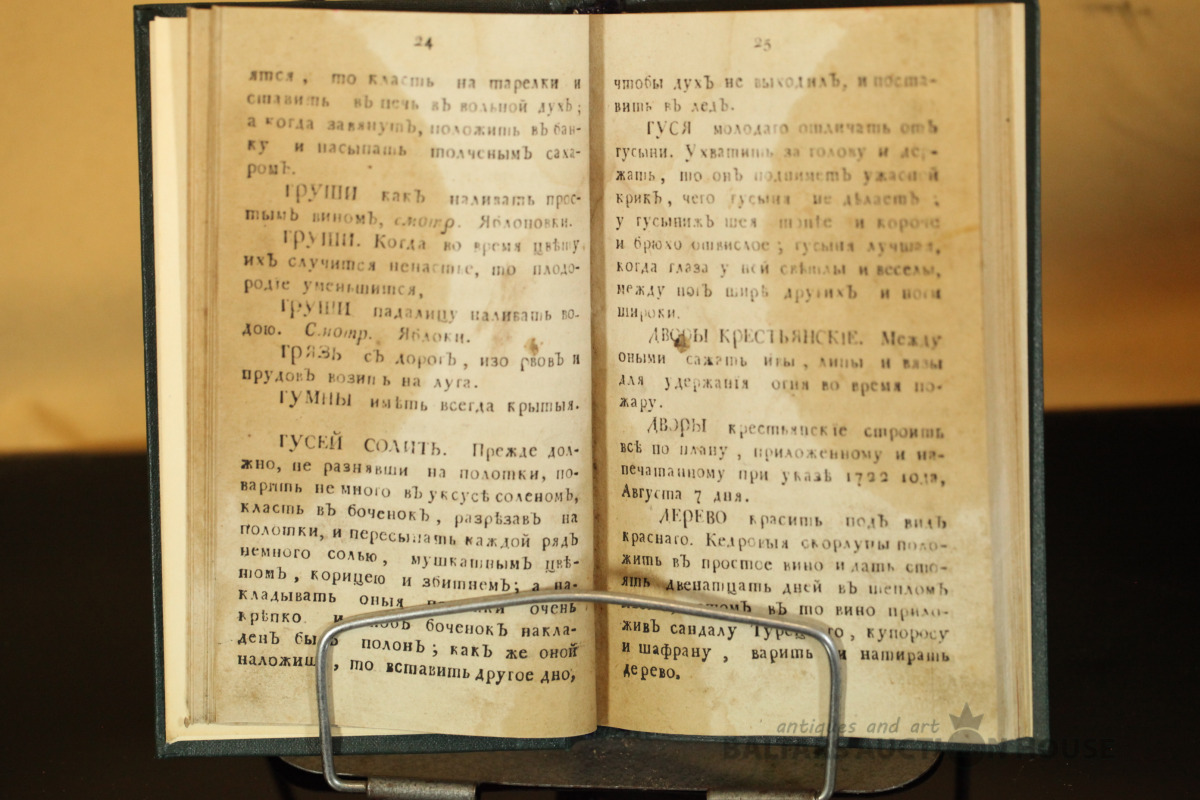 24
ятся, то класть на тарелки и
ставить въ печь въ вольной духъ;
а когда завянутъ, положить въ бан-
ку и насыпать толченымъ саха-
ромъ.
ГРУШИ какъ наливать прос-
тымъ виномъ, смотр. Яблоновки.
ГРУШИ. Когда во время цвѣту
ихъ случится ненастье, то плодо-
родїе уменьшится,
ГРУШИ падалицу наливать во-
дою. Смотр. Яблоки.
ГРЯЗЬ съ дорогъ, изо рвовъ и
прудовъ возить на луга.
ГУМНЫ имѣть всегда крытыя.
ГУСЕЙ СОЛИТЬ. Прежде дол-
жно, не разнявши на полотки, по-
варить не много въ уксусѣ соленомъ,
класть въ боченокъ, разрѣзавъ на
полотки, и пересыпать каждой рядъ
немного солью, мушкатнымъ цвѣ-
томъ, корицею и збитнемъ; а на-
кладывать оныя очень
крѣпко боченокъ накла-
денъ полонъ; какъ же оной
, то вставить другое дно,
25
чтобы духъ не выходилъ, и поста-
вить въ ледъ.
ГУСЯ молодаго отличать отъ
гусыни. Ухватить за голову и дер-
жать, то онъ подниметъ ужасной
крикъ, чего гусыня не дѣлаетъ;
у гусынижъ шея тонѣе и короче
и брюхо отвислое; гусыня лучшая,
когда глаза у ней свѣтлы и веселы,
между ногъ ширѣ другихъ и ноги
широки.
ДВОРЫ КРЕСТЬЯНСКІЕ. Между
оными сажать ивы, липы и вязы
для удержанїя огня во время по-
жару.
ДВОРЫ крестьянскїе строить
всѣ по плану, приложенному и на-
печатанному при указѣ 1722 года,
Августа 7 дня.
ДЕРЕВО красить подъ видъ
краснаго. Кедровыя скорлупы поло-
жить въ простое вино и дать сто-
ять двенатцать дней въ тепломъ
въ то вино прило-
живъ сандалу , купоросу
и шафрану, варить и натирать
дерево.
antiques and art
BALTARS AUCTION HOUSE